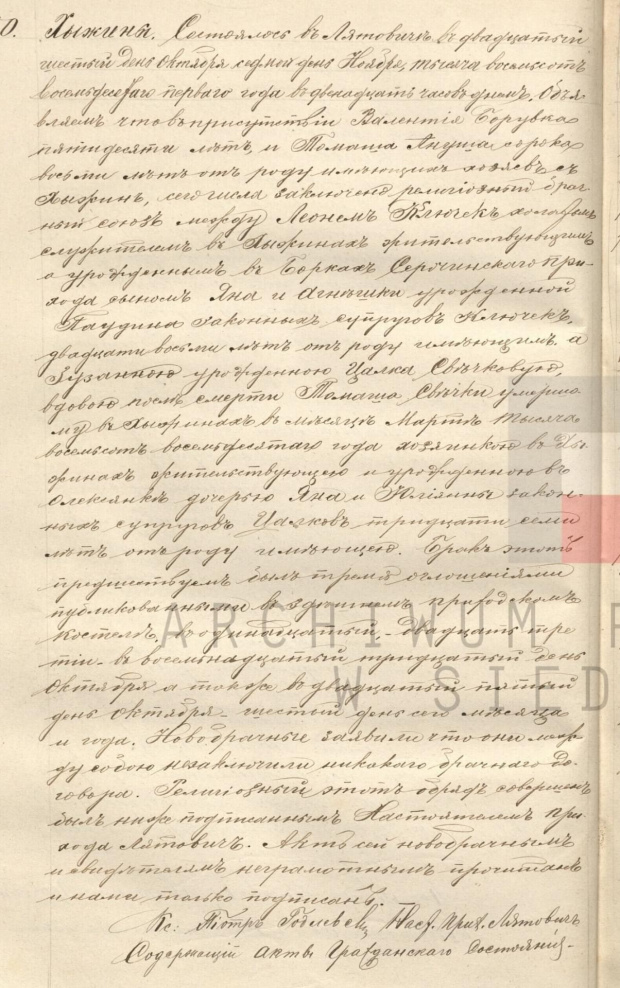 0. Хыжины. Состоялось въ Лятовичъ въ двадцатый
шестый день Октября седмой день Ноября, тысяча восемьсотъ
восемьдесятаго перваго года въ двенадцать часовъ днемъ. Объя
вляемъ что въ присутствіи Валентія Борувка
пятидесяти лѣтъ, и Томаша Андуша сорока
восьми лѣтъ отъ роду имѣющихъ хозяевъ съ
Хыжинъ, сего числа заключенъ религіозный брач-
ный союзъ между Леономъ Ключекъ холостымъ
служителемъ въ Хыжинахъ жительствующимъ
а урожденнымъ въ Боркахъ Серочинскаго при-
хода сыномъ Яна и Агнѣшки урожденной
Паудина законныхъ супруговъ Ключекъ,
двадцати восьми лѣтъ отъ роду имѣющимъ а
Зузанною урожденною Цалка Свѣчковую,
вдовою послѣ смерти Томаша Свѣчки умерша-
му въ Хыжинахъ въ мѣсяцѣ Мартѣ тысяча
восемьсотъ восемьдесятаго года хозяинкою въ Хы-
жинахъ жительствующею и урожденною въ
Олексянкѣ дочерью Яна и Юліянны закон-
ныхъ супруговъ Цалковъ тридцати семи
лѣтъ отъ роду имѣющею. Бракъ этотъ
предшествуемъ былъ тремя оглошеніями
публикованными въ здѣшнемъ приходскомъ
костелѣ, въ одинадцатый - двадцать тре
тій - въ восемьнадцатый тридцатый день
Октября а также въ двадцатый пятый
день Октября - шестый день сего мѣсяца
и года. Новобрачные заявили что они меж
ду собою незаключили никакого брачнаго до-
говора. Религіозный этотъ обрядъ совершенъ
былъ ниже подписаннымъ Настоятелемъ при
хода Лятовичъ. Актъ сей новобрачнымъ
и свидѣтелямъ неграмотнымъ прочитанъ
и нами только подписанъ.
Кс: Піотръ Наст. Прих. Лятовичъ
Содержающій акты Гражданскаго Состоянія -
ARCHIWUM P
W SIED